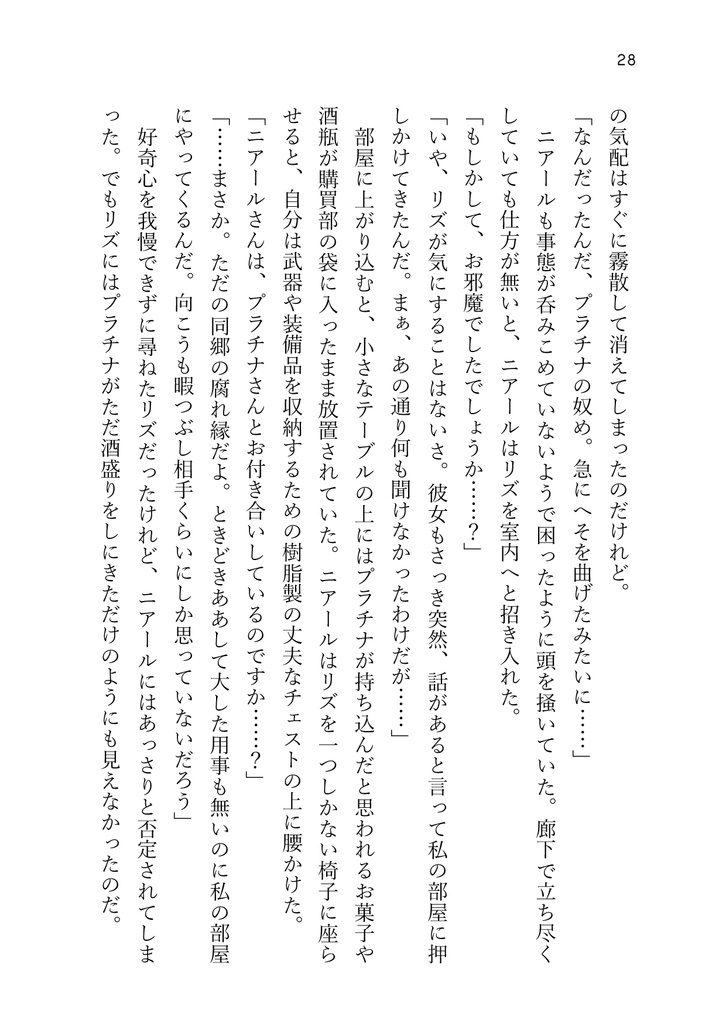 28
の気配はすぐに霧散して消えてしまったのだけれど。
「なんだったんだ、プラチナの奴め。急にへそを曲げたみたいに……」
ニアールも事態が呑みこめていないようで困ったように頭を掻いていた。廊下で立ち尽く
していても仕方が無いと、ニアールはリズを室内へと招き入れた。
「もしかして、お邪魔でしたでしょうか……？」
「いや、リズが気にすることはないさ。彼女もさっき突然、話があると言って私の部屋に押
しかけてきたんだ。まぁ、あの通り何も聞けなかったわけだが……」
部屋に上がり込むと、小さなテーブルの上にはプラチナが持ち込んだと思われるお菓子や
酒瓶が購買部の袋に入ったまま放置されていた。ニアールはリズを一つしかない椅子に座ら
せると、自分は武器や装備品を収納するための樹脂製の丈夫なチェストの上に腰かけた。
「ニアールさんは、プラチナさんとお付き合いしているのですか……？」
「……まさか。ただの同郷の腐れ縁だよ。ときどきああして大した用事も無いのに私の部屋
にやってくるんだ。向こうも暇つぶし相手くらいにしか思っていないだろう」
好奇心を我慢できずに尋ねたリズだったけれど、ニアールにはあっさりと否定されてしま
った。でもリズにはプラチナがただ酒盛りをしにきただけのようにも見えなかったのだ。